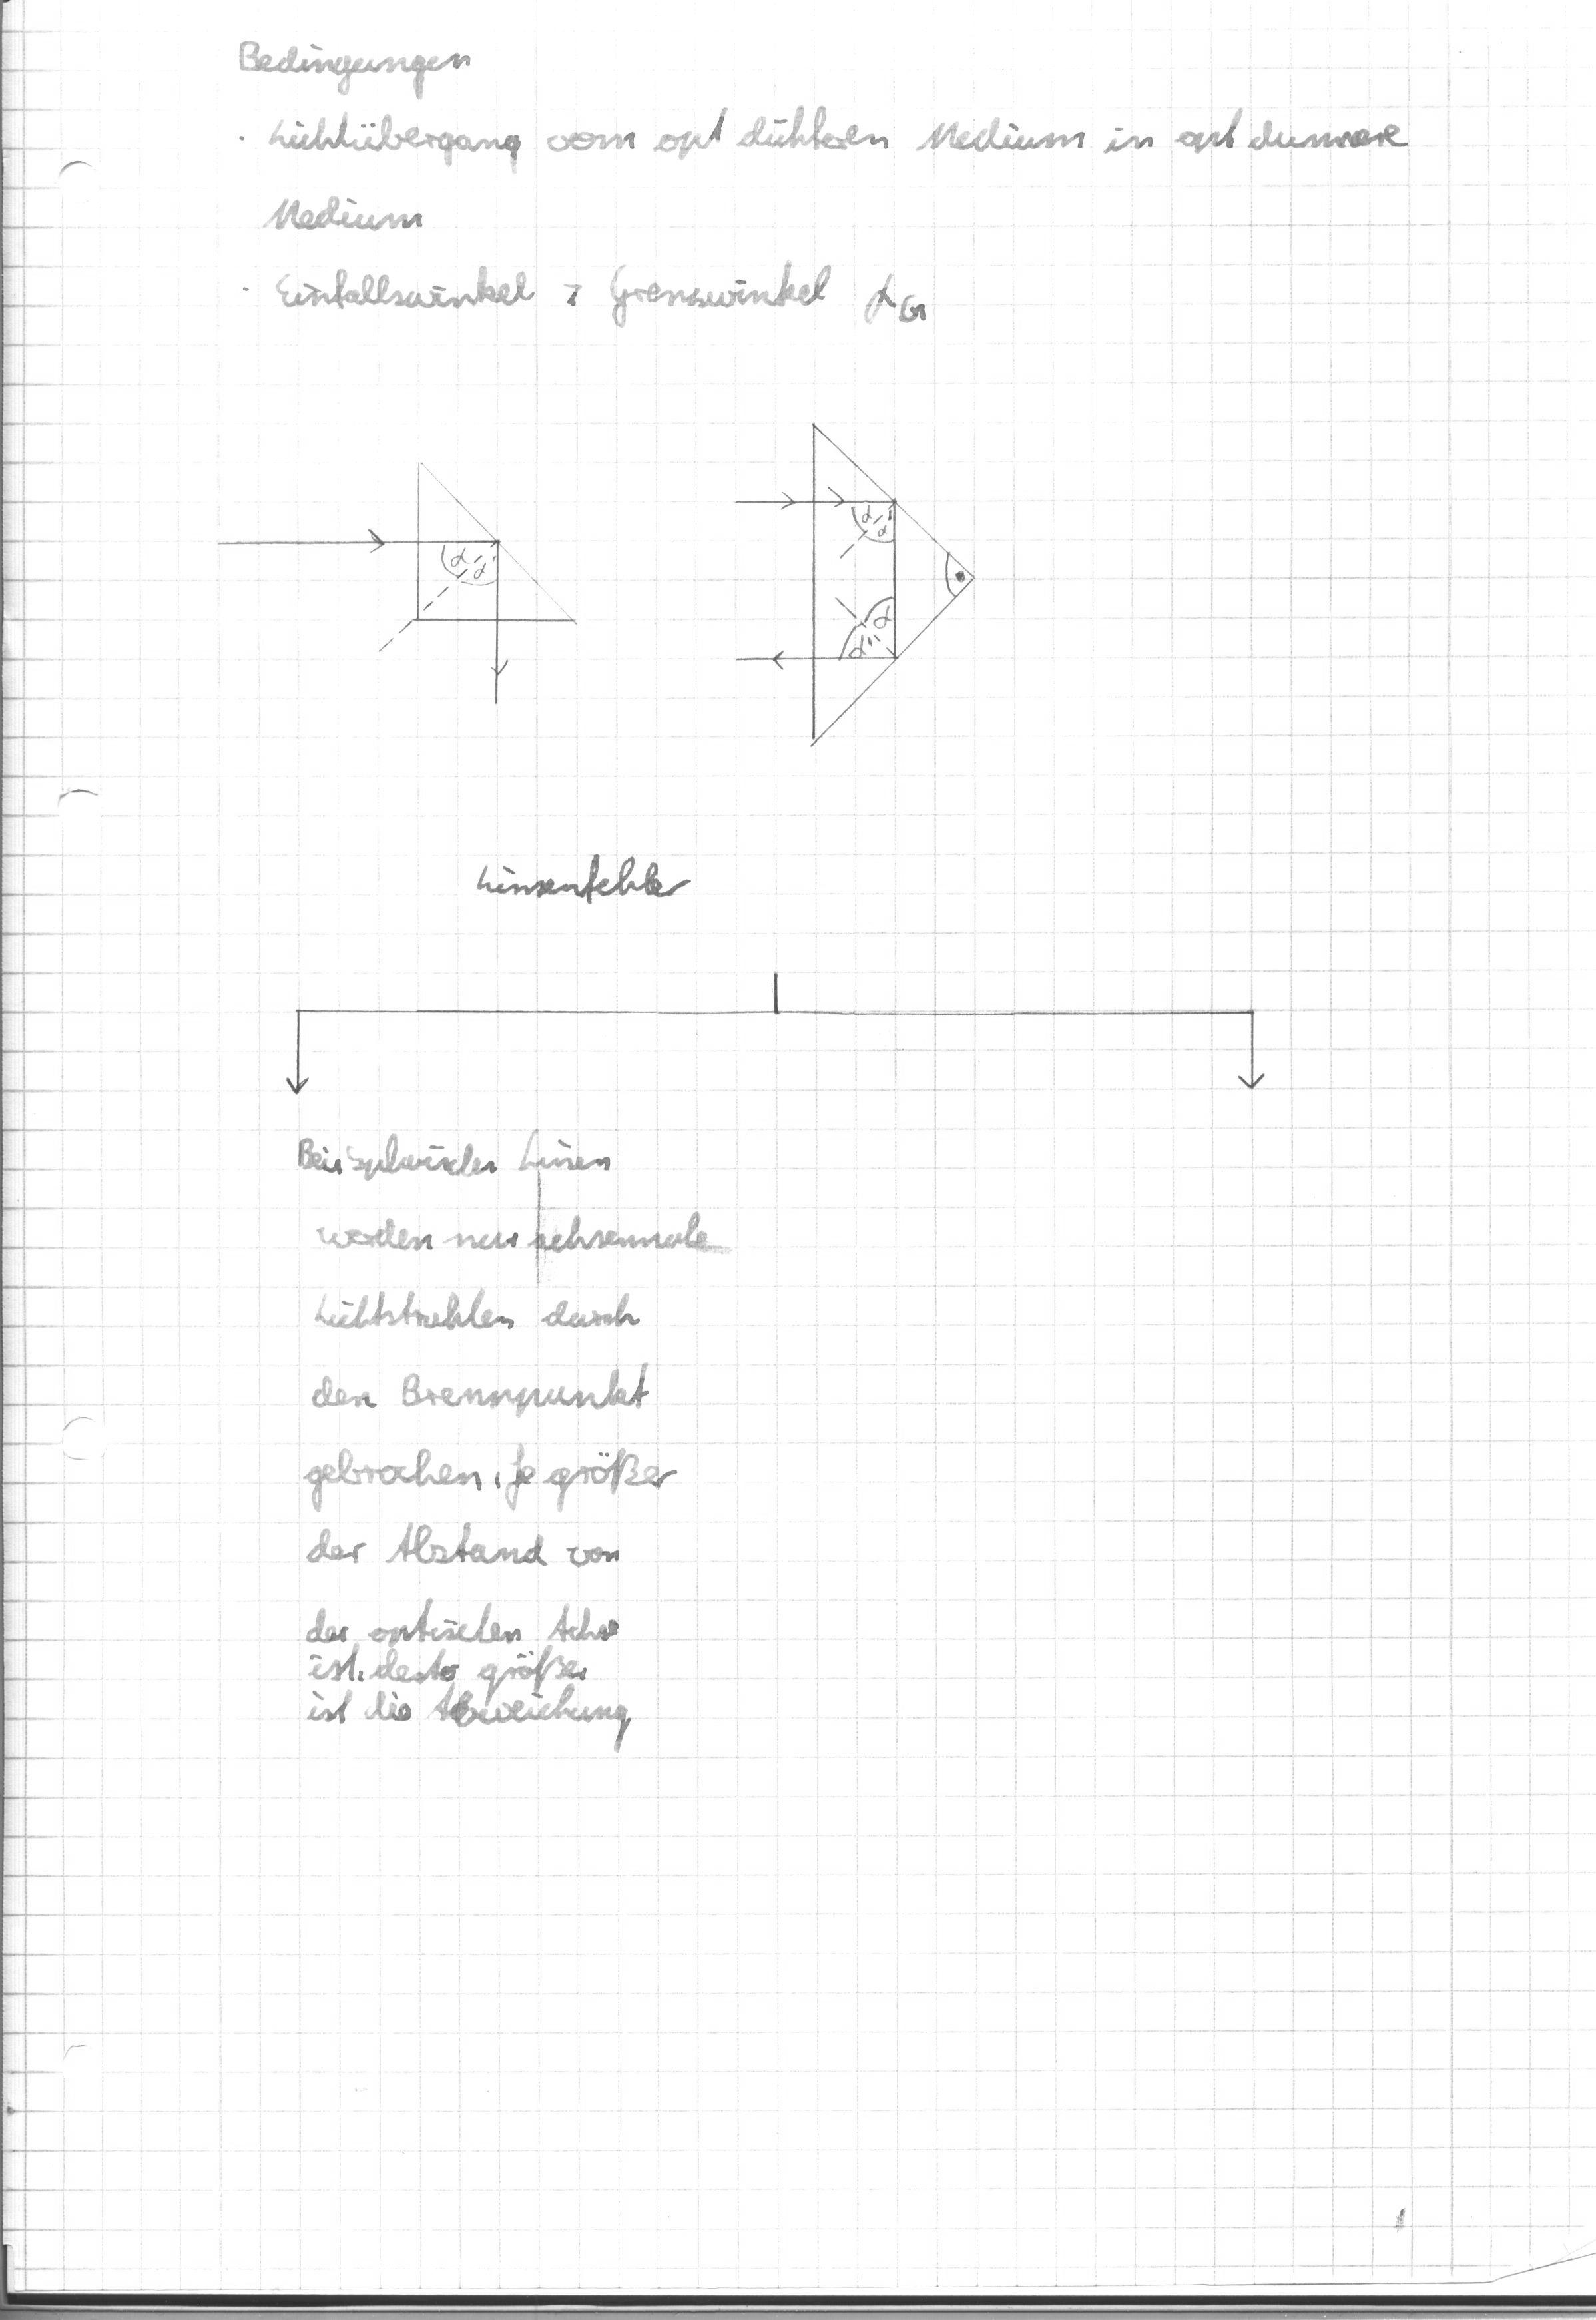 Bedingungen
· Lichtübergang vom opt dichteren Medium in opt dünnere
Medium
· Einfallswinkel > Grenzwinkel α_G
α α
α α
α α
Linsenfehler
Bei sphärischen Linsen
werden nur achsennahe
Lichtstrahlen durch
den Brennpunkt
gebrochen. Je größer
der Abstand von
der optischen Achse
ist, desto größer
ist die Abweichung